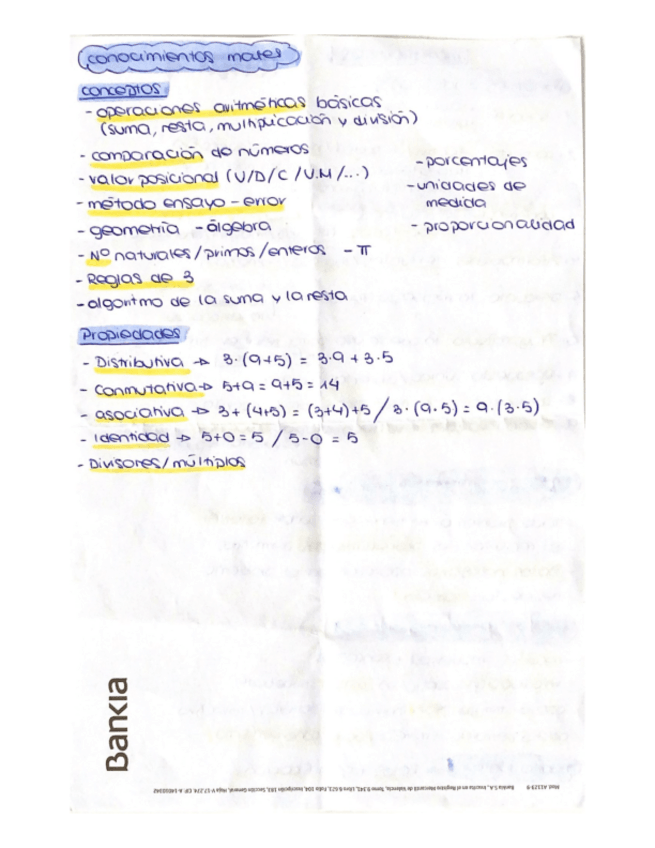 conocimientos mates
conceptos
- operaciones aritméticas básicas
(suma, resta, multiplicación y división)
- comparación de números
- valor posicional (U/D/C/U.M/...)
- método ensayo - error
- geometría - álgebra
- Nº naturales/primos/enteros - π
- Reglas de 3
- algoritmo de la suma y la resta
- porcentajes
- unidades de
medida
- proporcionalidad
Propiedades
- Distributiva → 3·(9+5) = 3·9 + 3·5
- Conmutativa → 5+9 = 9+5 = 14
- asociativa → 3+(4+5) = (3+4)+5 / 3·(9·5) = 9·(3·5)
- Identidad → 5+0 = 5 / 5-0 = 5
- Divisores/múltiplos
Bankia
Bankia S.A., Inscrita en el Registro Mercantil de Valencia, Tomo 9.341, Libro 6.623, Folio 104, Inscripción 183, Sección General, Hoja V 17.274. CIF: A-14010342